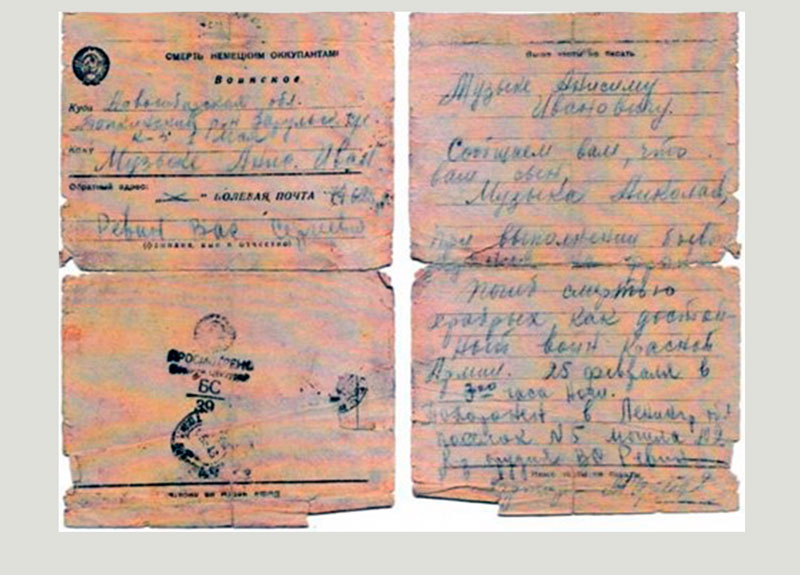 СМЕРТЬ НЕМЕЦКИМ ОККУПАНТАМ!
Воинское
Куда Новосибирская обл.
К-з 1 Мая
Кому
Музыке Анис. Иван
Обратный адрес:
" ПОЛЕВАЯ ПОЧТА
Ревин Вас Сергеев
(фамилия, имя и отчество)
ПРОСМОТРЕНО
БС
39
Выше черты не писать
Музыке Анисиму
Ивановичу.
Сообщаем вам, что
ваш сын,
Музыка Николай,
при выполнении боев
погиб смертью
храбрых как достой-
ный воин Красной
Армии. 25 февраля в
3 00 часа ночи.
Похоронен в Ленингр
посёлок N5 могила
К-р орудия ВС Ревин
Ниже черты не писать